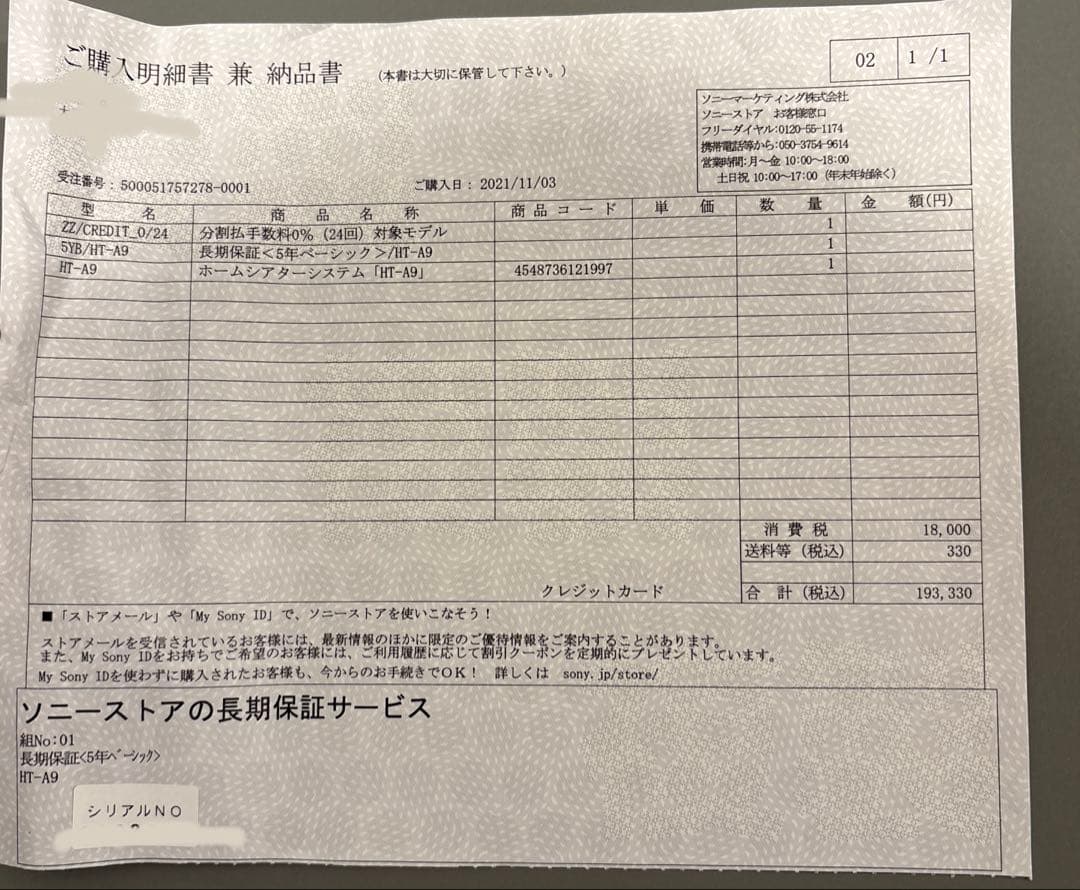 ご購入明細書 兼 納品書 (本書は大切に保管して下さい。)
02 1 /1
ソニーマーケティング株式会社
ソニーストア お客様窓口
フリーダイヤル:0120-55-1174
携帯電話等から:050-3754-9614
営業時間:月～金 10:00～18:00
土日祝 10:00～17:00 (年末年始除く)
受注番号: 500051757278-0001 ご購入日: 2021/11/03
型名 商品名称 商品コード 単価 数量 金額(円)
ZZ/CREDIT_0/24 分割払手数料0% (24回) 対象モデル 1
5YB/HT-A9 長期保証<5年ベーシック>/HT-A9 1
HT-A9 ホームシアターシステム「HT-A9」 4548736121997 1
消費税 18,000
送料等 (税込) 330
クレジットカード 合計 (税込) 193,330
■「ストアメール」や「My Sony ID」で、ソニーストアを使いこなそう!
ストアメールを受信されているお客様には、最新情報のほかに限定のご優待情報をご案内することがあります。
また、My Sony IDをお持ちでご希望のお客様には、ご利用履歴に応じて割引クーポンを定期的にプレゼントしています。
My Sony IDを使わずに購入されたお客様も、今からのお手続きでOK! 詳しくは sony.jp/store/
ソニーストアの長期保証サービス
組No:01
長期保証<5年ベーシック>
HT-A9
シリアルNO